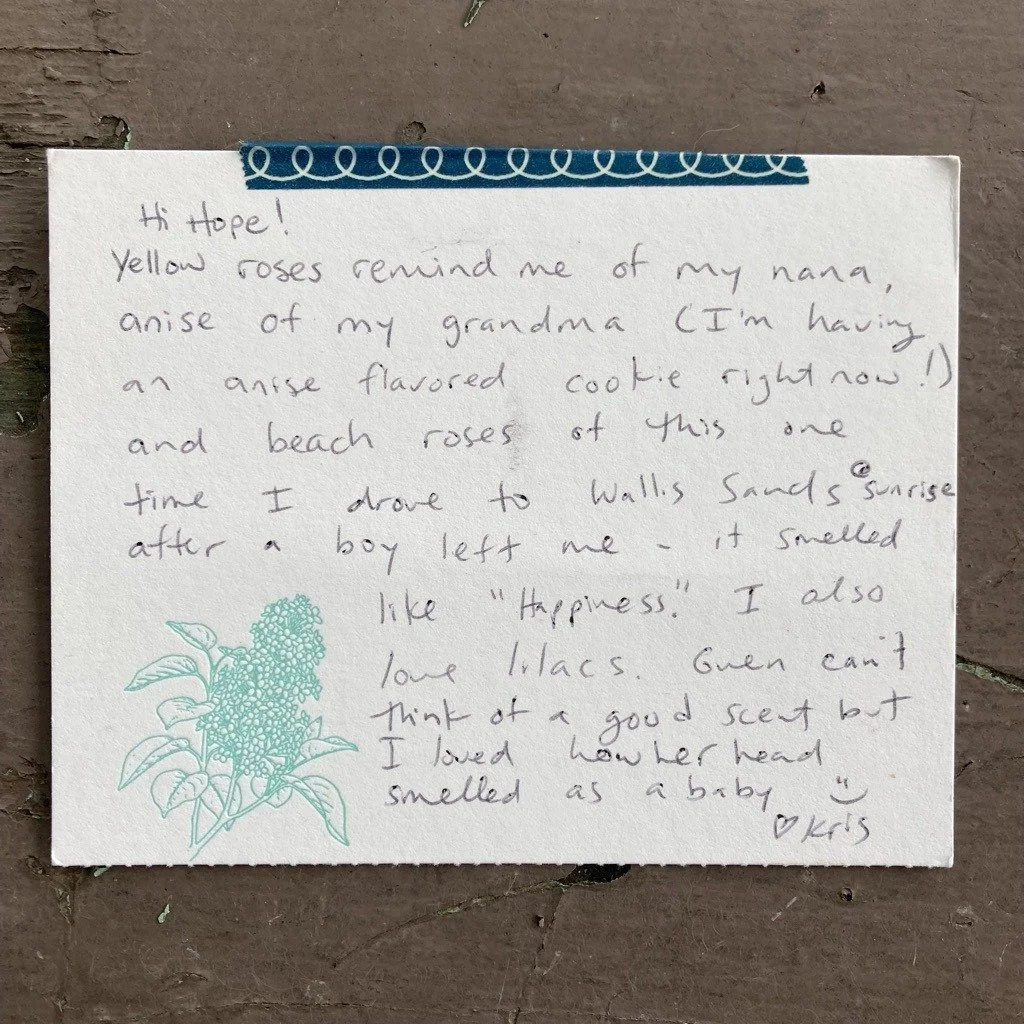 Hi Hope!
Yellow roses remind me of my nana,
anise of my grandma (I'm having
an anise flavored cookie right now!)
and beach roses of this one
time I drove to Wallis Sands @ sunrise
after a boy left me - it smelled
like "Happiness." I also
love lilacs. Gwen can't
think of a good scent but
I loved how her head
smelled as a baby
♡ Kris